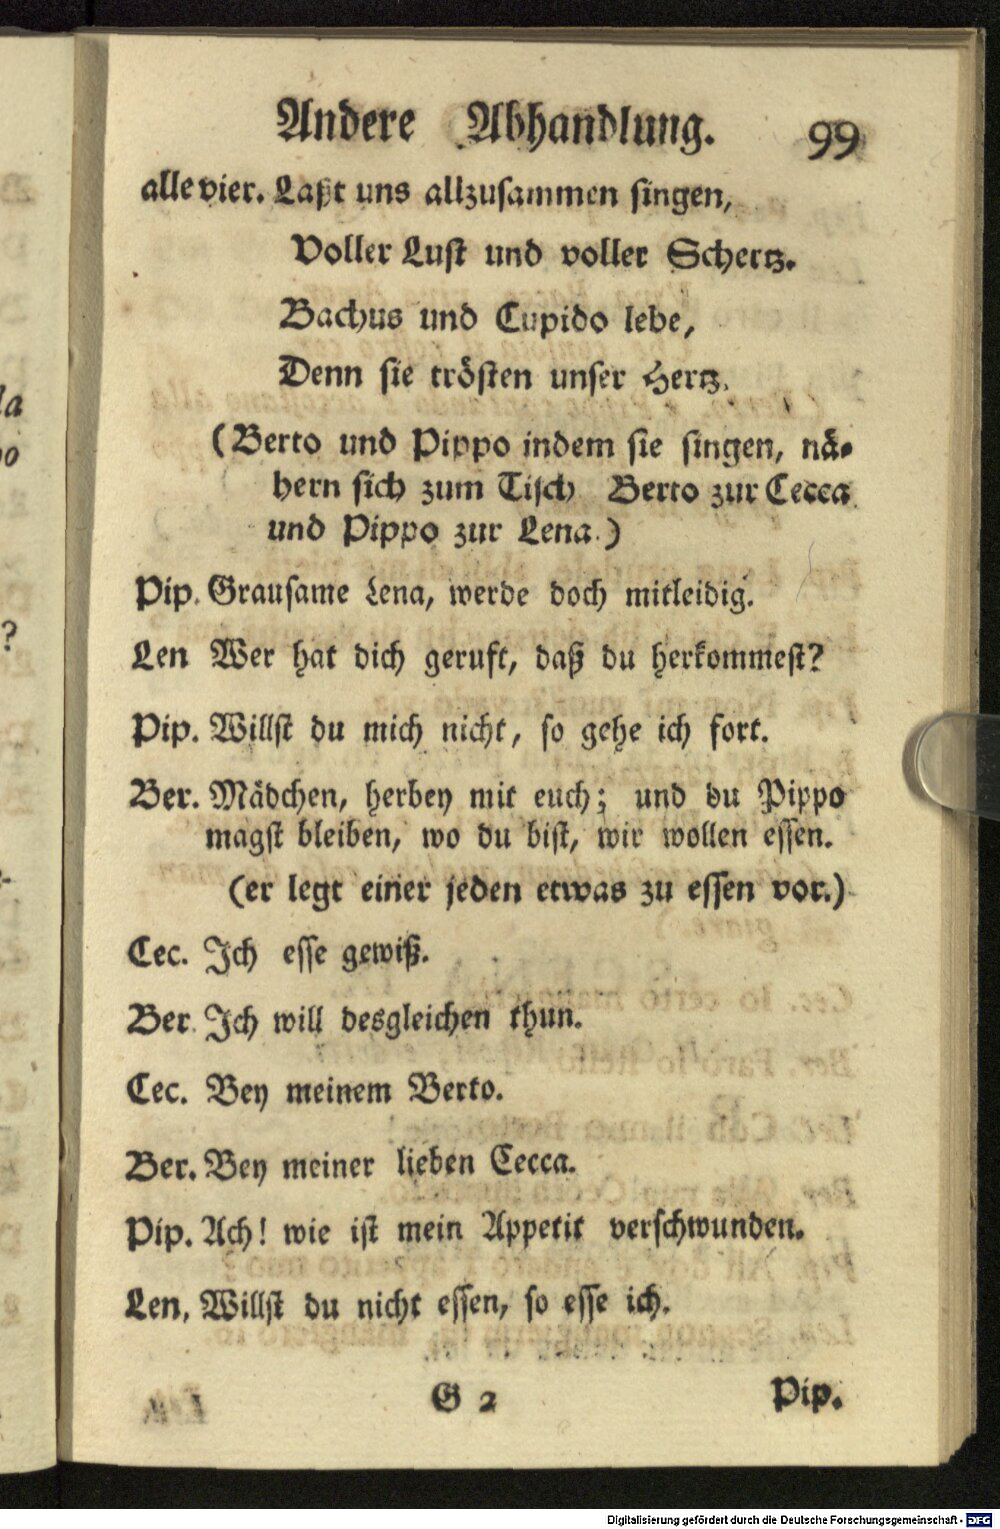 Andere Abhandlung. 99
alle vier. Laßt uns allzusammen singen,
Voller Lust und voller Schertz.
Bachus und Cupido lebe,
Denn sie trösten unser Hertz.
(Berto und Pippo indem sie singen, nä-
hern sich zum Tisch Berto zur Cecca
und Pippo zur Lena.)
Pip. Grausame Lena, werde doch mitleidig.
Len Wer hat dich geruft, daß du herkommest?
Pip. Willst du mich nicht, so gehe ich fort.
Ber. Mädchen, herbey mit euch; und du Pippo
magst bleiben, wo du bist, wir wollen essen.
(er legt einer jeden etwas zu essen vor.)
Cec. Ich esse gewiß.
Ber. Ich will desgleichen thun.
Cec. Bey meinem Berto.
Ber. Bey meiner lieben Cecca.
Pip. Ach! wie ist mein Appetit verschwunden.
Len. Willst du nicht essen, so esse ich.
G 2 Pip.
la
?
Digitalisierung gefördert durch die Deutsche Forschungsgemeinschaft - DFG